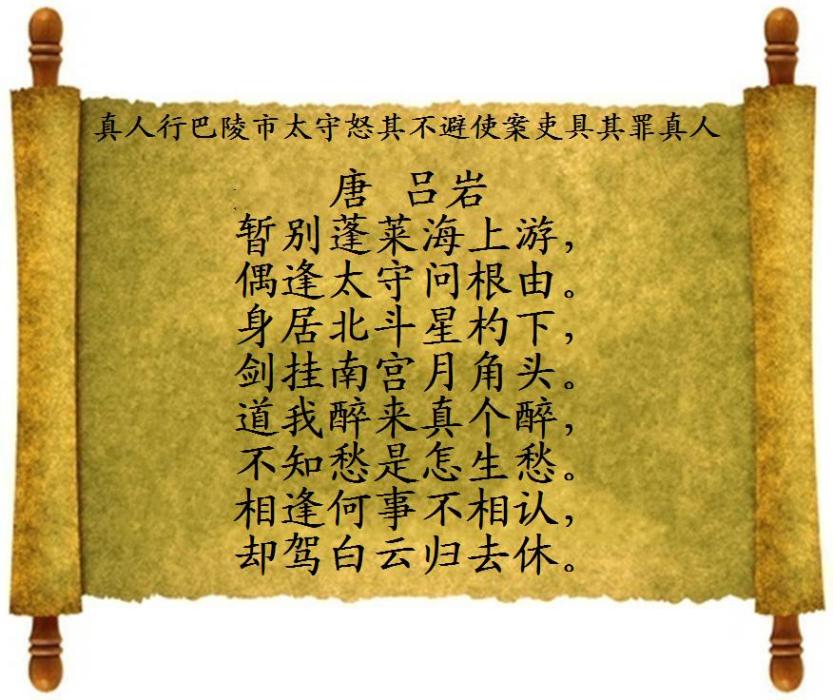 真人行巴陵市太守怒其不避使案吏具其罪真人
唐 吕岩
暂别蓬莱海上游，
偶逢太守问根由。
身居北斗星杓下，
剑挂南宫月角头。
道我醉来真个醉，
不知愁是怎生愁。
相逢何事不相认，
却驾白云归去休。